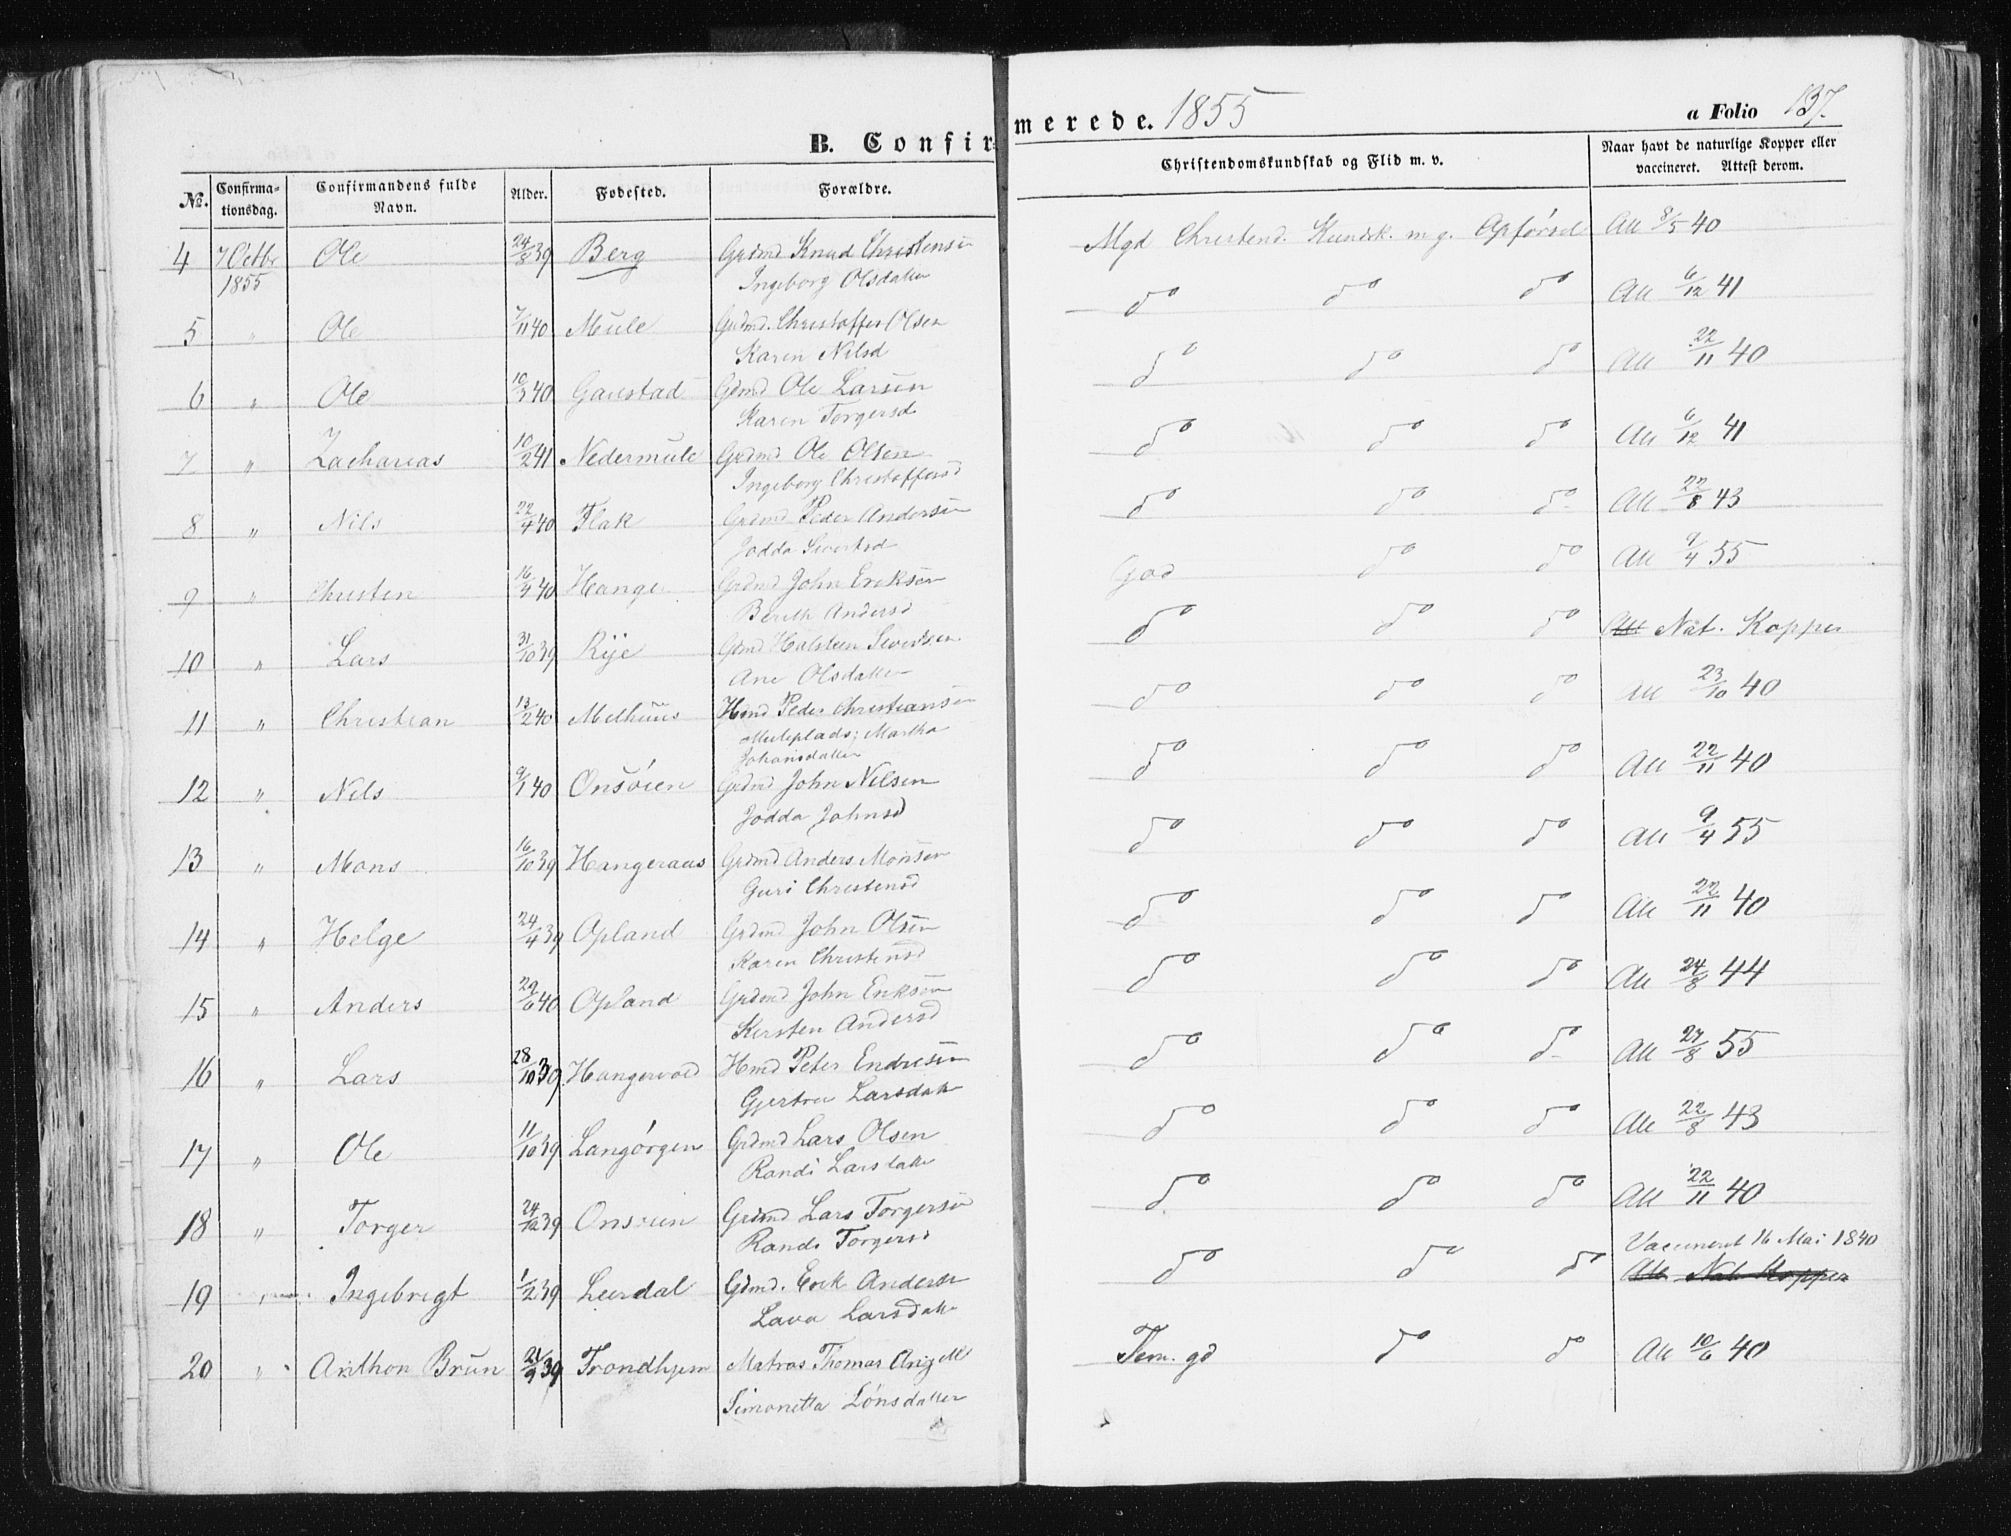 B. Confirmerede. 1855
a Folio 137.
No. Confirmationsdag. Confirmandens fulde Navn. Alder. Fødested. Forældre. Christendomskundskab og Flid m. v. Naar havt de naturlige Kopper eller vaccineret. Attest derom.
4 7 Octbr 1855 Ole 24/8 39 Berg Grdmd Knud Christensen Mgd Christend. Kundsk. mg. Opførsel Att 8/5 40
Ingeborg Olsdatter
5 " Ole 7/11 40 Mule Grdmd. Christoffer Olsen do do do Att 6/12 41
Karen Nilsd
6 " Ole 10/3 40 Gaustad Gdmd Ole Larsen do do do Att 22/11 40
Karen Torgersd
7 " Zacharias 10/2 41 Nedermule Grdmd Ole Olsen do do do Att 6/12 41
Ingeborg Christoffersd
8 " Nils 22/4 40 Flak Grdmd Peder Andersen do do do Att 22/8 43
Jodda Sivertsd
9 " Christen 16/4 40 Hange Grdmd John Eriksen God do do Att 9/4 55
Berith Andersd
10 " Lars 31/10 39 Rye Gdmd Halsteen Sivertsen do do do Att Nat. Kopper
Ane Olsdatter
11 " Christian 13/2 40 Melhuus Hmd Peder Christiansen do do do Att 23/10 40
Muleplads; Martha
Johansdatter
12 " Nils 9/1 40 Onsøien Grdmd John Nilsen do do do Att 22/11 40
Jodda Johnsd
13 " Mons 16/10 39 Hangeraas Grdmd Anders Monsen do do do Att 9/4 55
Guri Christensd
14 " Helge 24/4 39 Opland Grdmd John Olsen do do do Att 22/11 40
Karen Christensd
15 " Anders 22/6 40 Opland Grdmd John Eriksen do do do Att 24/8 44
Kirsten Andersd
16 " Lars 28/10 39 Hangervold Hmd Peter Endresen do do do Att 27/8 55
Gjertrue Larsdatter
17 " Ole 11/10 39 Langørgen Grdmd Lars Olsen do do do Att 22/8 43
Randi Larsdatter
18 " Torger 24/12 39 Onsøien Grdmd Lars Torgersen do do do Att 22/11 40
Randi Torgersd
19 " Ingebrigt 1/2 39 Leerdal Gdmd. Erik Andersen do do do Vaccineret 16 Mai 1840
Lava Larsdatter Att Nat. Kopper
20 " Anthon Brun 21/9 39 Trondhjem Matros Thomas Tem. gd do do Att 10/6 40
Simonetta Lønsdatter